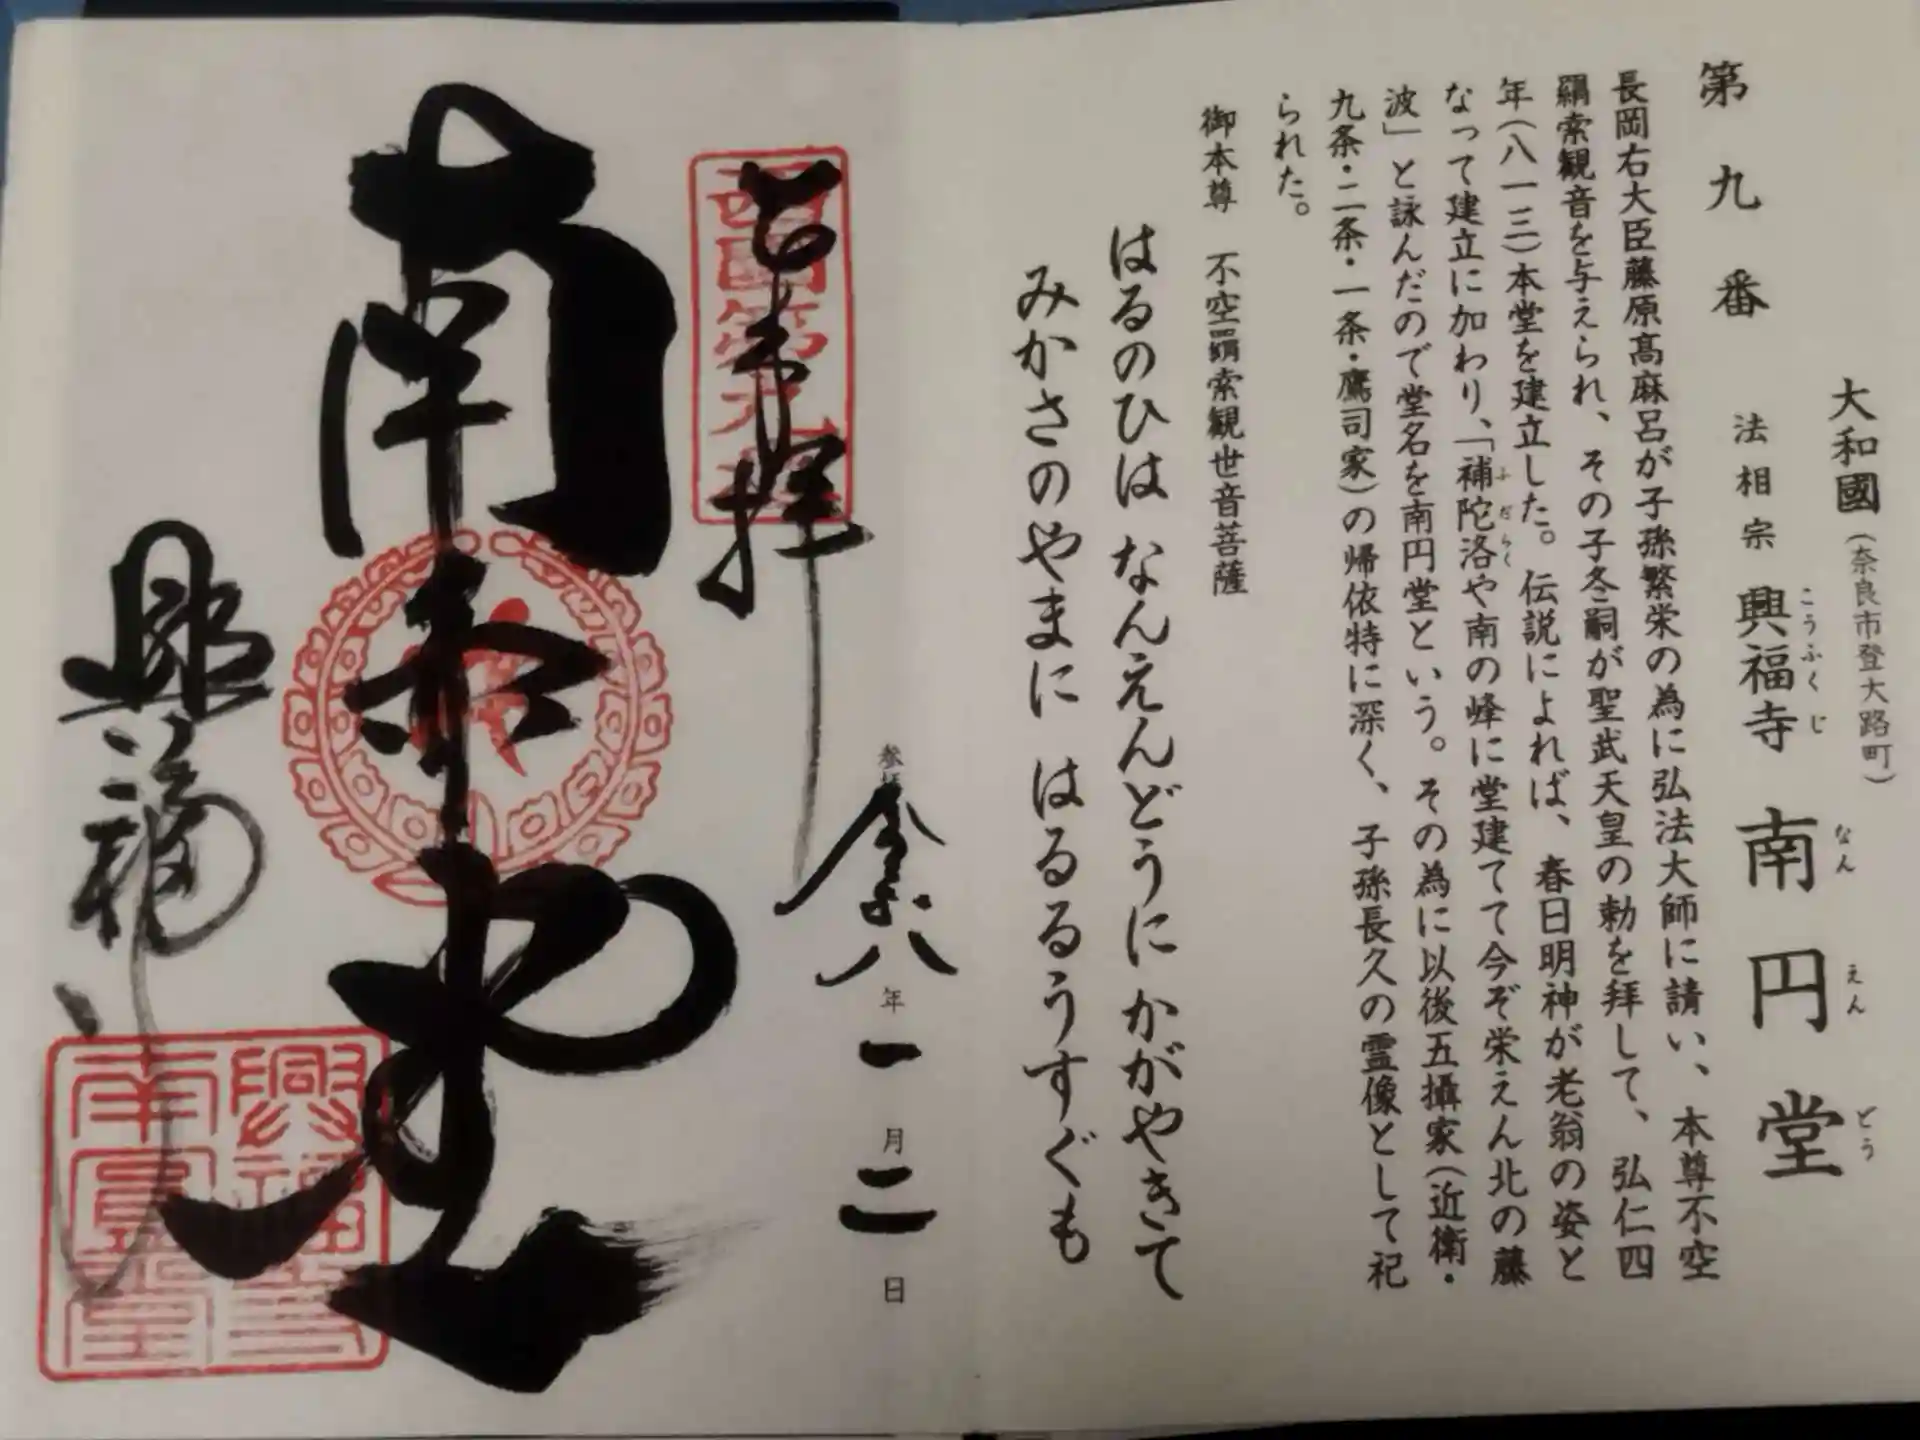 第九番
大和國（奈良市登大路町）
法相宗 興福寺 南円堂
こうふくじ なんえんどう
長岡右大臣藤原髙麻呂が子孫繁栄の為に弘法大師に請い、本尊不空
羂索観音を与えられ、その子冬嗣が聖武天皇の勅を拝して、弘仁四
年（八一三）本堂を建立した。伝説によれば、春日明神が老翁の姿と
なって建立に加わり、「補陀洛や南の峰に堂建てて今ぞ栄えん北の藤
ふだらく
波」と詠んだので堂名を南円堂という。その為に以後五攝家（近衛・
九条・二条・一条・鷹司家）の帰依特に深く、子孫長久の霊像として祀
られた。
御本尊 不空羂索観世音菩薩
はるのひは なんえんどうに かがやきて
みかさのやまに はるるうすぐも
西国第九番
奉拝
参拝 令和八年一月二日
南円堂
興福寺
興福寺
南円堂